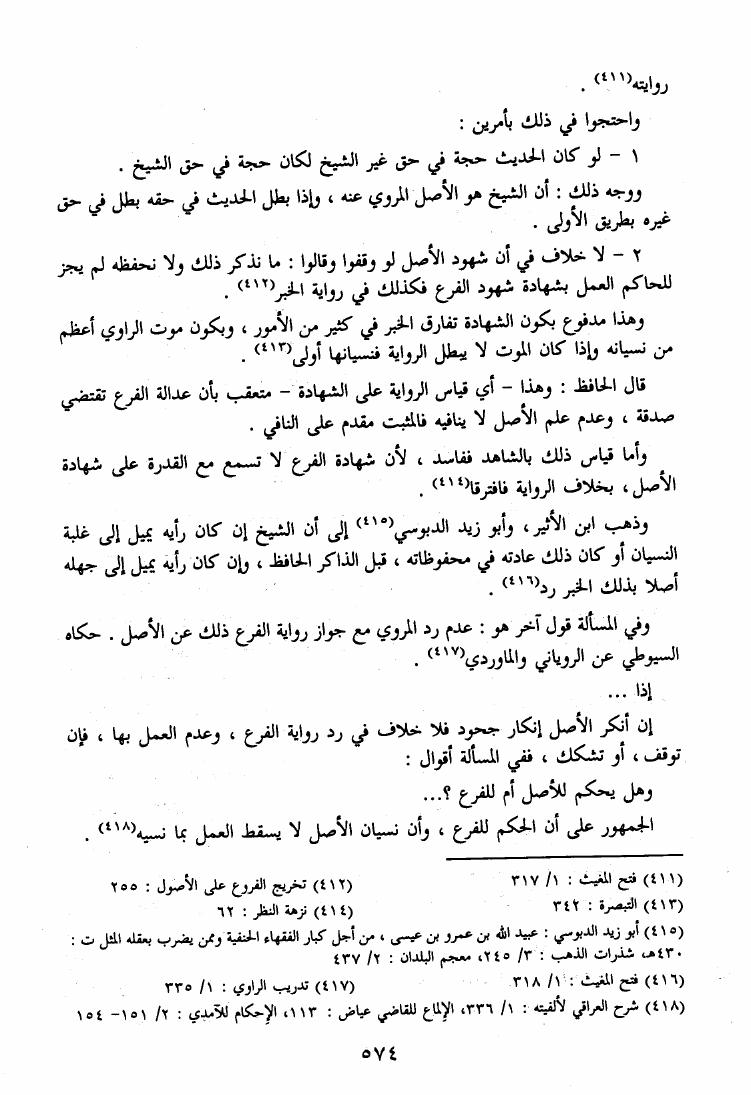 روايته(٤١١) .
واحتجوا في ذلك بأمرين :
١ – لو كان الحديث حجة في حق غير الشيخ لكان حجة في حق الشيخ .
ووجه ذلك : أن الشيخ هو الأصل المروي عنه ، وإذا بطل الحديث في حقه بطل في حق
غيره بطريق الأولى .
٢ – لا خلاف في أن شهود الأصل لو وقفوا وقالوا : ما نذكر ذلك ولا نحفظه لم يجز
للحاكم العمل بشهادة شهود الفرع فكذلك في رواية الخبر(٤١٢) .
وهذا مدفوع بكون الشهادة تفارق الخبر في كثير من الأمور ، وبكون موت الراوي أعظم
من نسيانه وإذا كان الموت لا يبطل الرواية فنسيانها أولى(٤١٣) .
قال الحافظ : وهذا – أي قياس الرواية على الشهادة – متعقب بأن عدالة الفرع تقتضي
صدقة ، وعدم علم الأصل لا ينافيه فالمثبت مقدم على النافي .
وأما قياس ذلك بالشاهد ففاسد ، لأن شهادة الفرع لا تسمع مع القدرة على شهادة
الأصل ، بخلاف الرواية فافترقا(٤١٤) .
وذهب ابن الأثير ، وأبو زيد الدبوسي(٤١٥) إلى أن الشيخ إن كان رأيه يميل إلى غلبة
النسيان أو كان ذلك عادته في محفوظاته ، قبل الذاكر الحافظ ، وإن كان رأيه يميل إلى جهله
أصلا بذلك الخبر رد(٤١٦) .
وفي المسألة قول آخر هو : عدم رد المروي مع جواز رواية الفرع ذلك عن الأصل . حكاه
السيوطي عن الروياني والماوردي(٤١٧) .
إذا ...
إن أنكر الأصل إنكار جحود فلا خلاف في رد رواية الفرع ، وعدم العمل بها ، فإن
توقف ، أو تشكك ، ففي المسألة أقوال :
وهل يحكم للأصل أم للفرع ؟...
الجمهور على أن الحكم للفرع ، وأن نسيان الأصل لا يسقط العمل بما نسيه(٤١٨) .
(٤١١) فتح المغيث : ١/ ٣١٧ (٤١٢) تخريج الفروع على الأصول : ٢٥٥
(٤١٣) التبصرة : ٣٤٢ (٤١٤) نزهة النظر : ٦٢
(٤١٥) أبو زيد الدبوسي : عبيد الله بن عمرو بن عيسى ، من أجل كبار الفقهاء الحنفية وممن يضرب بعقله المثل ت :
٤٣٠هـ، شذرات الذهب : ٣/ ٢٤٥، معجم البلدان : ٢/ ٤٣٧
(٤١٦) فتح المغيث : ١/ ٣١٨ (٤١٧) تدريب الراوي : ١/ ٣٣٥
(٤١٨) شرح العراقي لألفيته : ١/ ٣٣٦، الإلماع للقاضي عياض : ١١٣، الإحكام للآمدي : ٢/ ١٥١– ١٥٤
٥٧٤